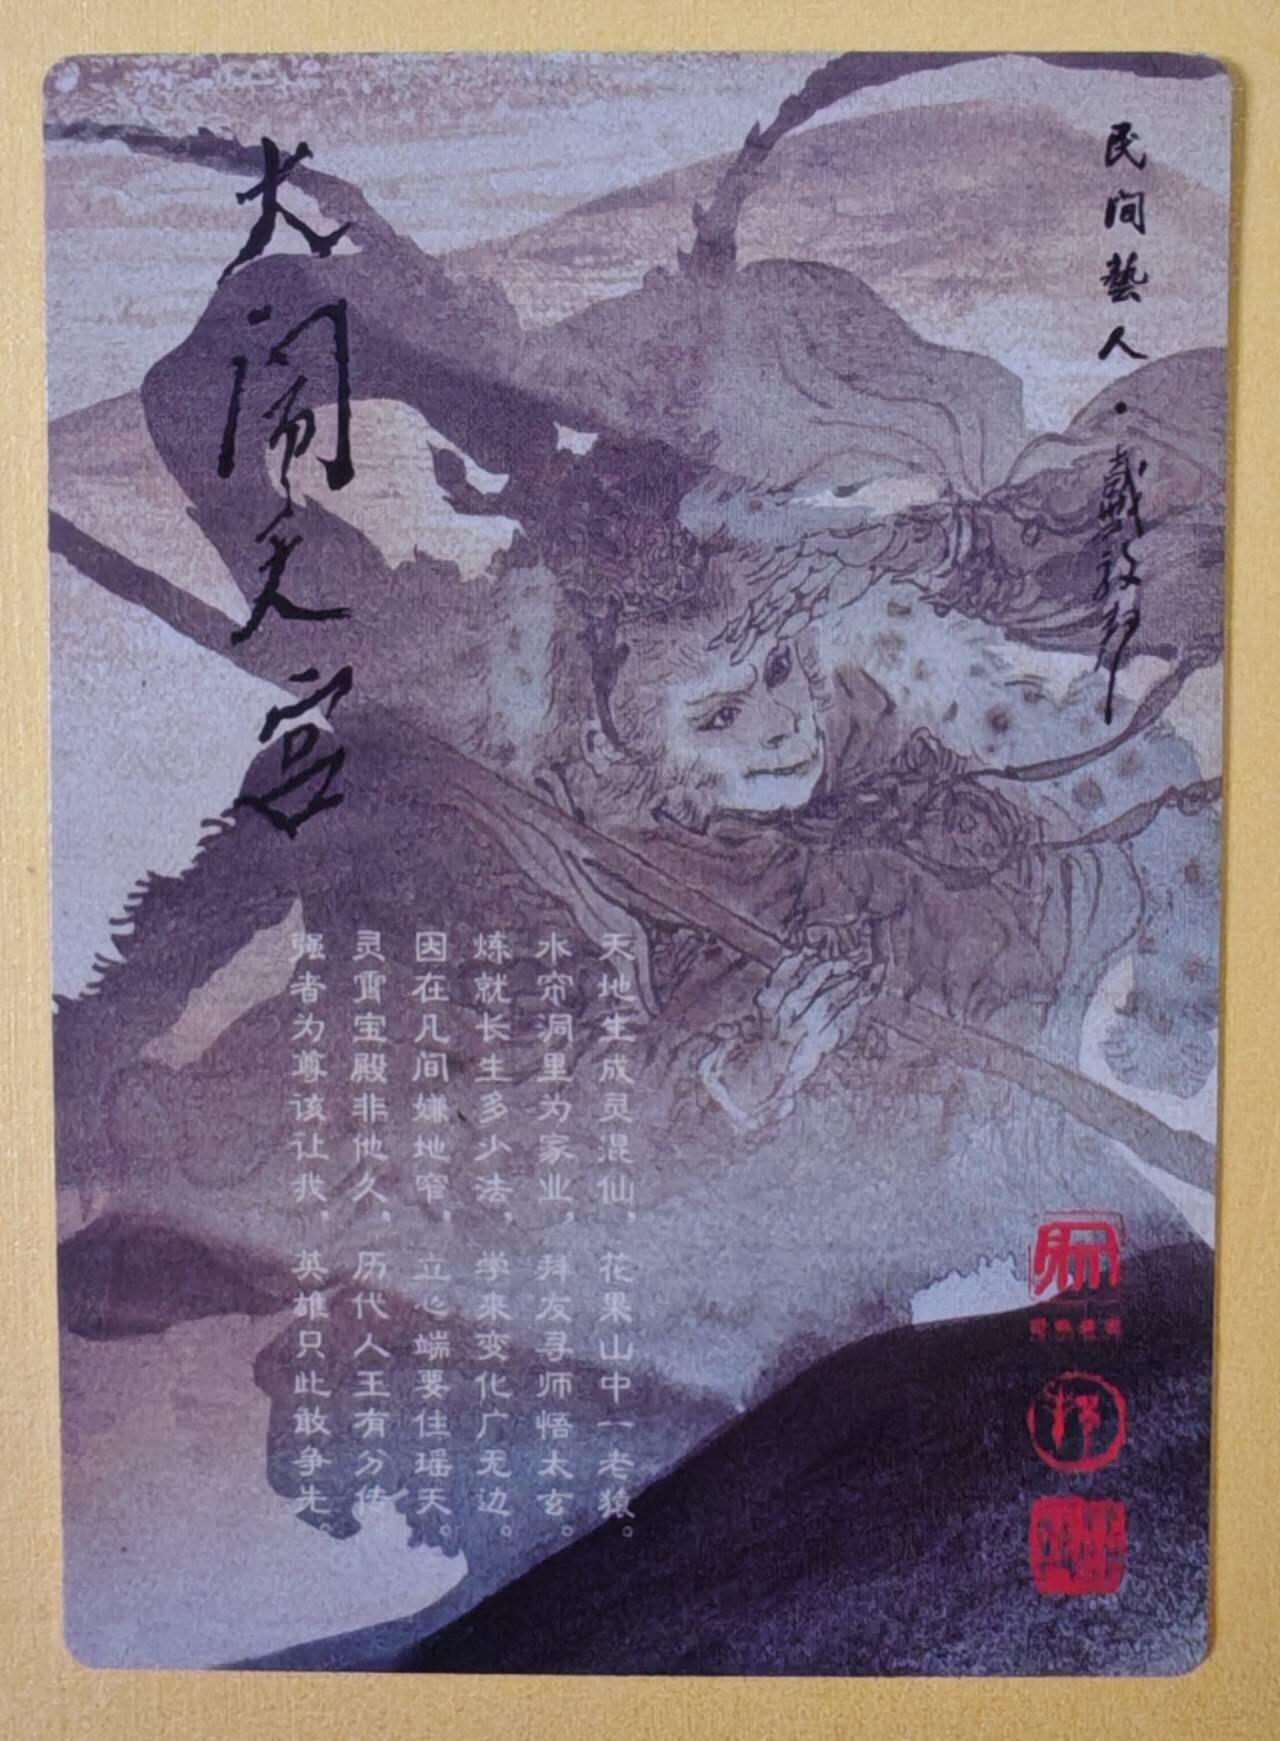 民间藝人·戴敦邦
大闹天宫
天地生成灵混仙，花果山中一老猿。
水帘洞里为家业，拜友寻师悟太玄。
炼就长生多少法，学来变化广无边。
因在凡间嫌地窄，立心端要住瑶天。
灵霄宝殿非他久，历代人王有分传
强者为尊该让我，英雄只此敢争先。